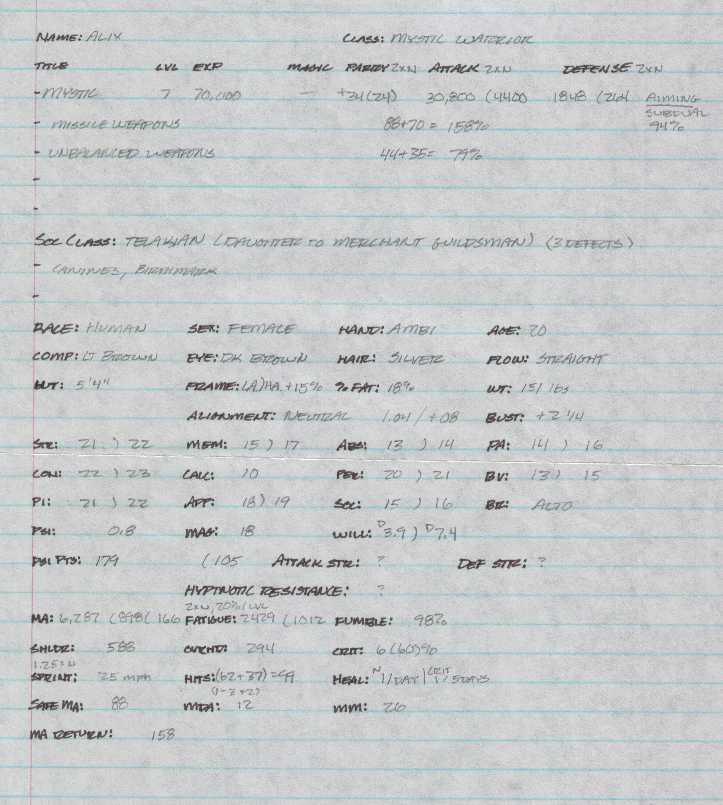 NAME: ALIX CLASS: MYSTIC WARRIOR
TITLE LVL EXP MAGIC PARRY 2XN ATTACK 2XN DEFENSE 2XN
- MYSTIC 7 70,000 — +34(24) 30,800 (4400 1848 (264 AIMING
SUBDUAL
- MISSILE WEAPONS 88+70 = 158% 94%
- UNBALANCED WEAPONS 44+35= 79%
-
-
-
SOC CLASS: TELAKIAN (DAUGHTER TO MERCHANT GUILDSMAN) (3 DEFECTS)
- CANINES, BIRTHMARK
-
RACE: HUMAN SEX: FEMALE HAND: AMBI AGE: 20
COMP: LT BROWN EYE: DK BROWN HAIR: SILVER FLOW: STRAIGHT
HT: 5'4" FRAME: (A)HA +15% % FAT: 18% WT: 151 lbs
ALIGNMENT: NEUTRAL 1.04 / +.08 BUST: +2 1/4
STR: 21 ) 22 MEM: 15 ) 17 ABS: 13 ) 14 PA: 14 ) 16
CON: 22 ) 23 CALC: 10 PER: 20 ) 21 BV: 13 ) 15
PI: 21 ) 22 APP: 18 ) 19 SOC: 15 ) 16 BR: ALTO
PSI: 0.8 MAG: 18 WILL: D3.9 ) D7.4
PSI PTS: 179 (105 ATTACK STR: ? DEF STR: ?
HYPTNOTIC RESISTANCE: ?
2XN, 20%/LVL
MA: 6,287 (898( 166 FATIGUE: 2429 (1012 FUMBLE: 98%
SHLDR: 588 OVRHD: 294 CRIT: 6 (60)%
1.25 x N
SPRINT: 25 mph HITS: (62+37) = 99 HEAL: N 1/DAY | CRIT 1/5DAYS
(1-3+2)
SAFE MA: 88 MDA: 12 MM: 26
MA RETURN: 158